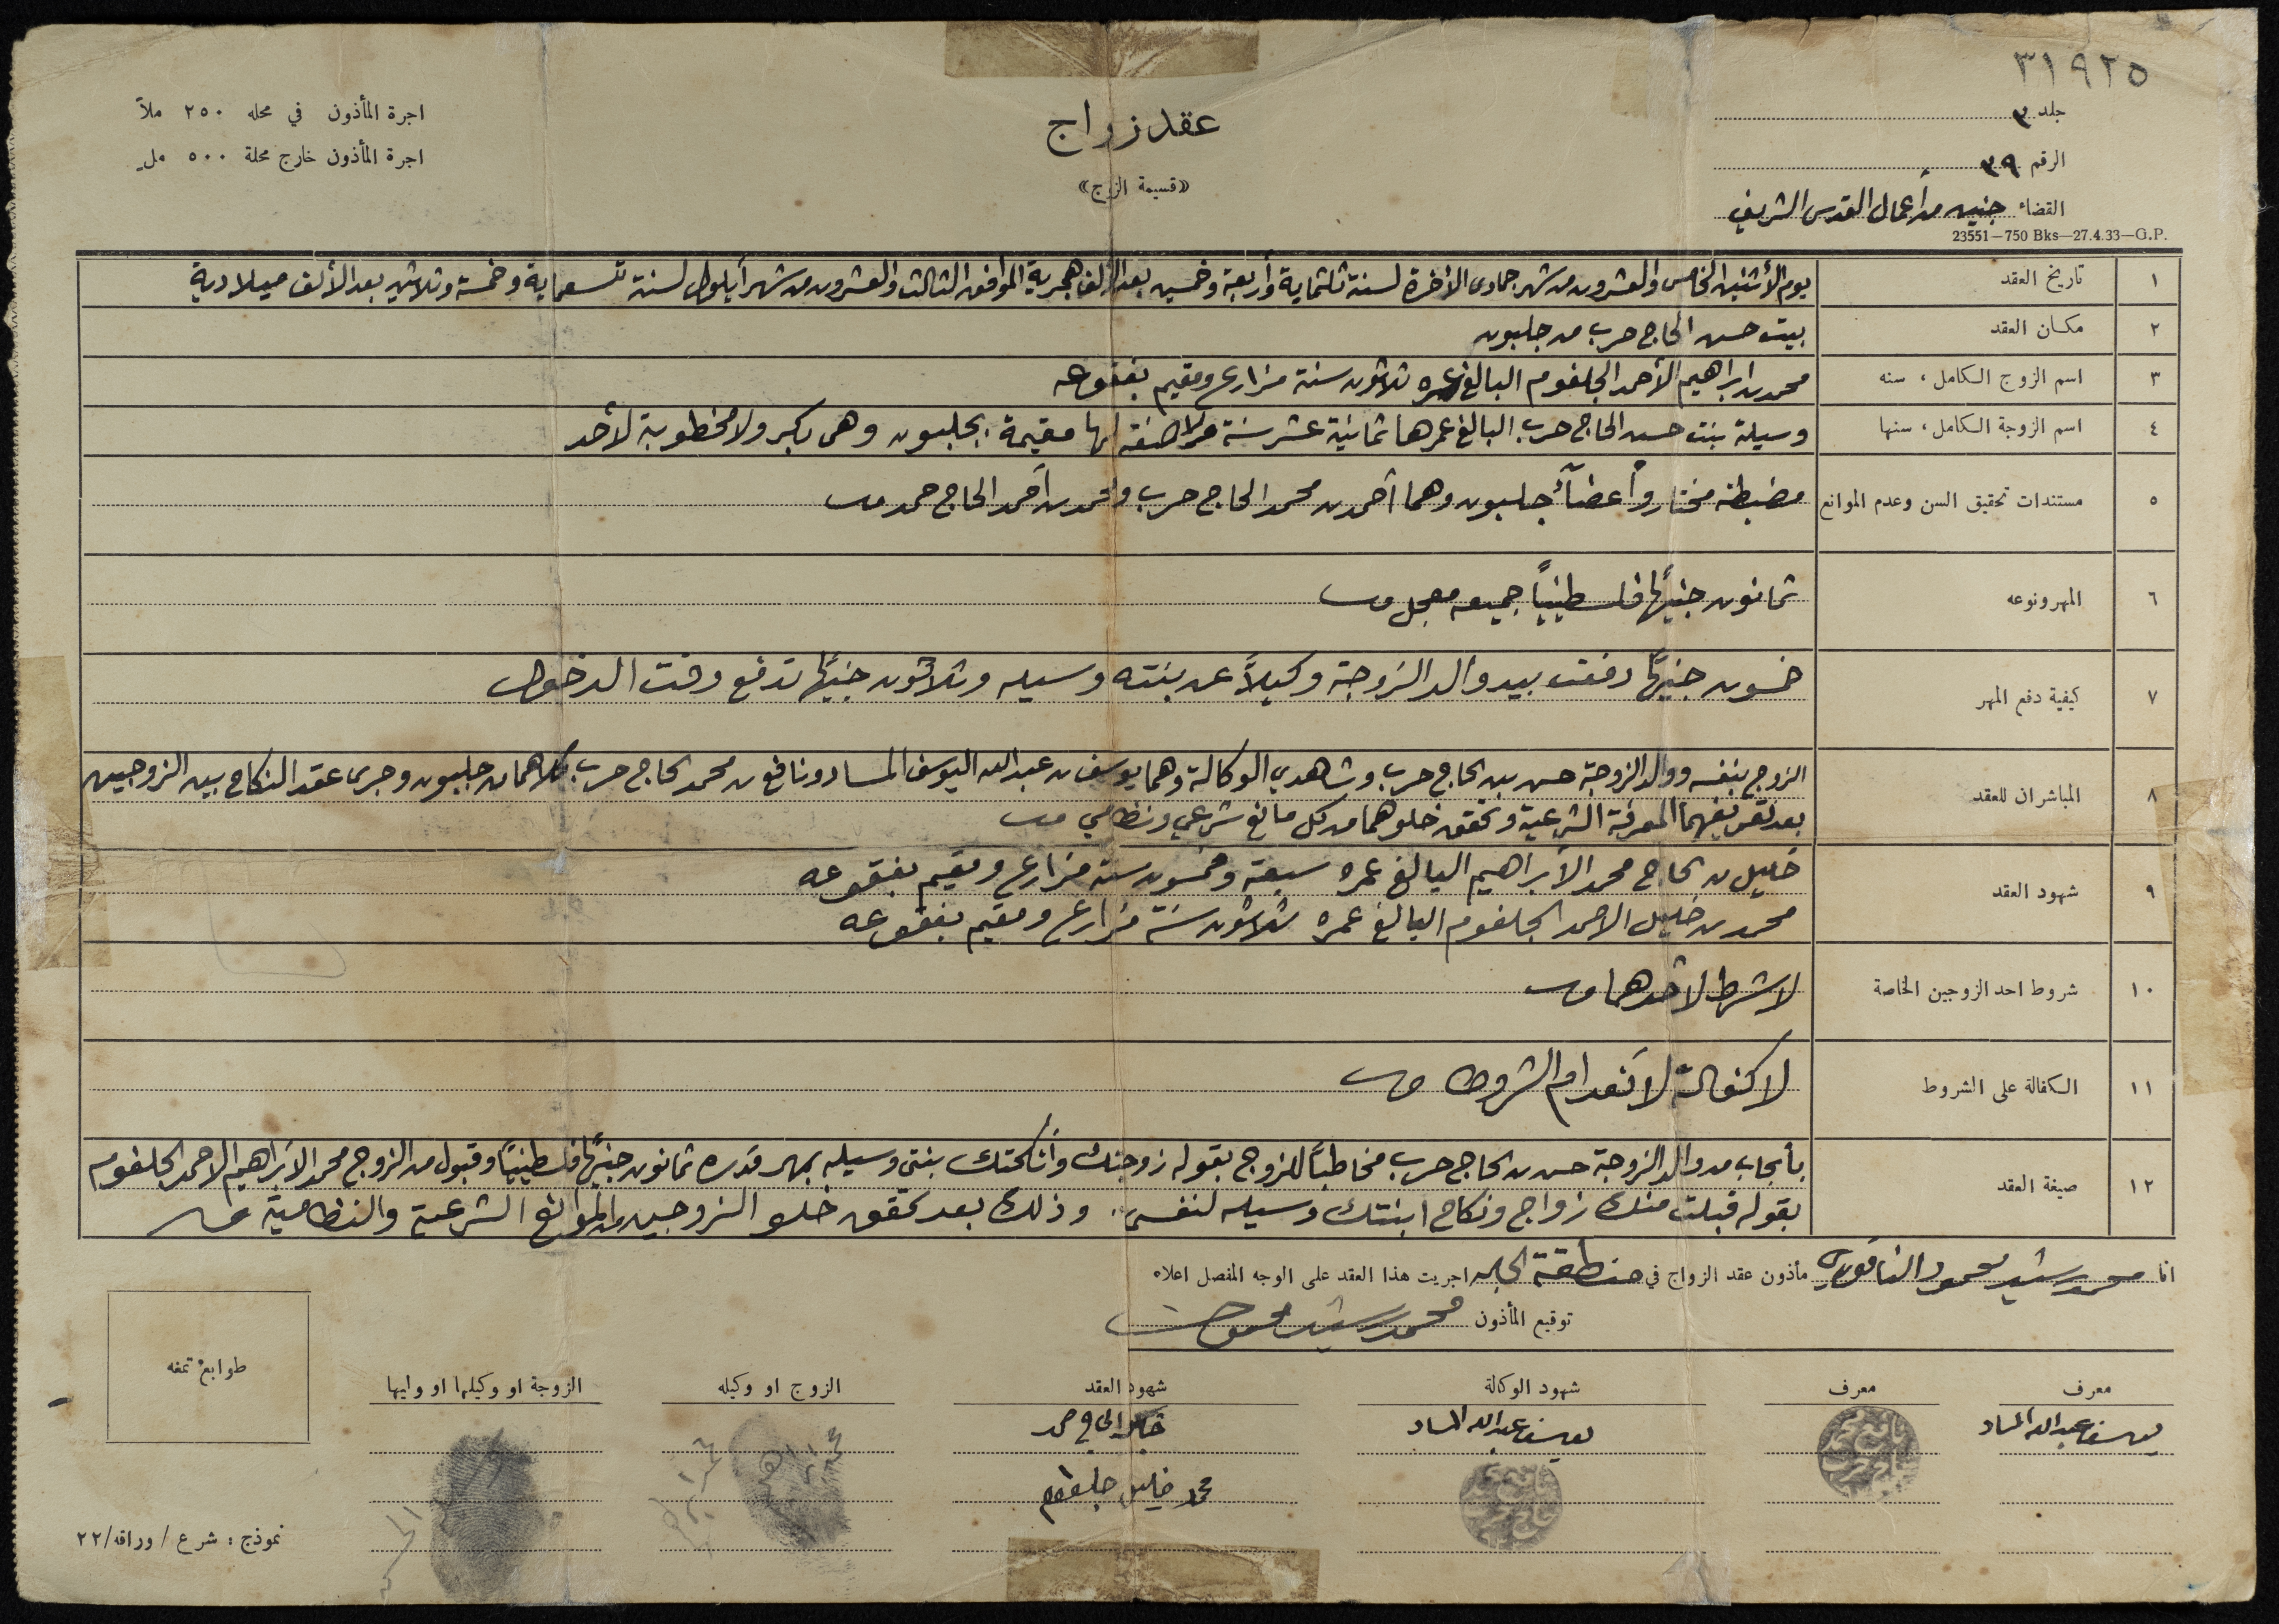 ٣١٩٢٥
جلد ٣
الرقم ٣٩
القضاء جنين من أعمال القدس الشريف
23551—750 Bks—27.4.33—G.P.
عقد زواج
«قسيمة الزوج»
اجرة المأذون في محله ٢٥٠ ملاً
اجرة المأذون خارج محلة ٥٠٠ مل
١ تاريخ العقد يوم الأثنين الخامس والعشرون من شهر جمادى الأخرة لسنة ثلثماية وأربعة وخمسين بعد الألف هجرية الموافق الثالث والعشرون من شهر أيلول لسنة تسعماية وخمسة وثلاثين بعد الألف ميلادية
٢ مكان العقد بيت حسن الحاج حرب من جلبون
٣ اسم الزوج الكامل، سنه محمد بن ابراهيم الأحمد الجلغوم البالغ عمره ثلاثون سنة مزارع ومقيم بفقوعه
٤ اسم الزوجة الكامل، سنها وسيلة بنت حسن الحاج حرب البالغ عمرها ثمانية عشر سنة لها مقيمة بجلبون وهي بكر ولا مخطوبة لأحد
٥ مستندات تحقيق السن وعدم الموانع مضبطة مختار وأعضاء جلبون وهما أحمد بن محمد الحاج حرب ومحمد بن أحمد الحاج حمد
٦ المهر ونوعه ثمانون جنيهًا فلسطينيًا جميعه معجل
٧ كيفية دفع المهر خمسون جنيهًا دفعت بيد والد الزوجة وكيلاً عن بنته وسيله وثلاثون جنيهًا تدفع وقت الدخول
٨ المباشران للعقد الزوج بنفسه ووالد الزوجة حسن بن الحاج حرب وشاهدي الوكالة وهما يوسف بن عبد الله اليوسف المساد ونافع بن محمد الحاج حرب كلاهما من جلبون وجرى عقد النكاح بين الزوجين
بعد تعريفهما المعرفة الشرعية وتحقق خلوهما من كل مانع شرعي ونظامي
٩ شهود العقد خليل بن الحاج محمد الأبراهيم البالغ عمره سبعة وخمسون سنة مزارع ومقيم بفقوعه
محمد بن خليل الاحمد الجلغوم البالغ عمره ثلاثون سنة مزارع ومقيم بفقوعه
١٠ شروط احد الزوجين الخاصة لا شرط لأحدهما
١١ الكفالة على الشروط لا كفالة لأنعدام الشروط
١٢ صيغة العقد بأيجاب من والد الزوجة حسن بن الحاج حرب مخاطبًا للزوج بقوله زوجتك وأنكحتك بنتي وسيله بمهر قدره ثمانون جنيهًا فلسطينيًا وقبول من الزوج محمد الأبراهيم الاحمد الجلغوم
بقوله قبلت منك زواج ونكاح ابنتك وسيله لنفسي. وذلك بعد تحقق خلو الزوجين من الموانع الشرعية والنظامية
انا محمد رشيد محمود مأذون عقد الزواج في منطقة اجريت هذا العقد على الوجه المفصل اعلاه
توقيع المأذون محمد رشيد محمود
معرف
يوسف عبد الله المساد
معرف
شهود الوكالة
يوسف عبد الله المساد
شهود العقد
خليل الحاج محمد
محمد خليل جلغوم
الزوج او وكيله
محمد ابراهيم
الزوجة او وكيلها او وليها
طوابع تمغه
نموذج: شرع / وراقه/٢٢